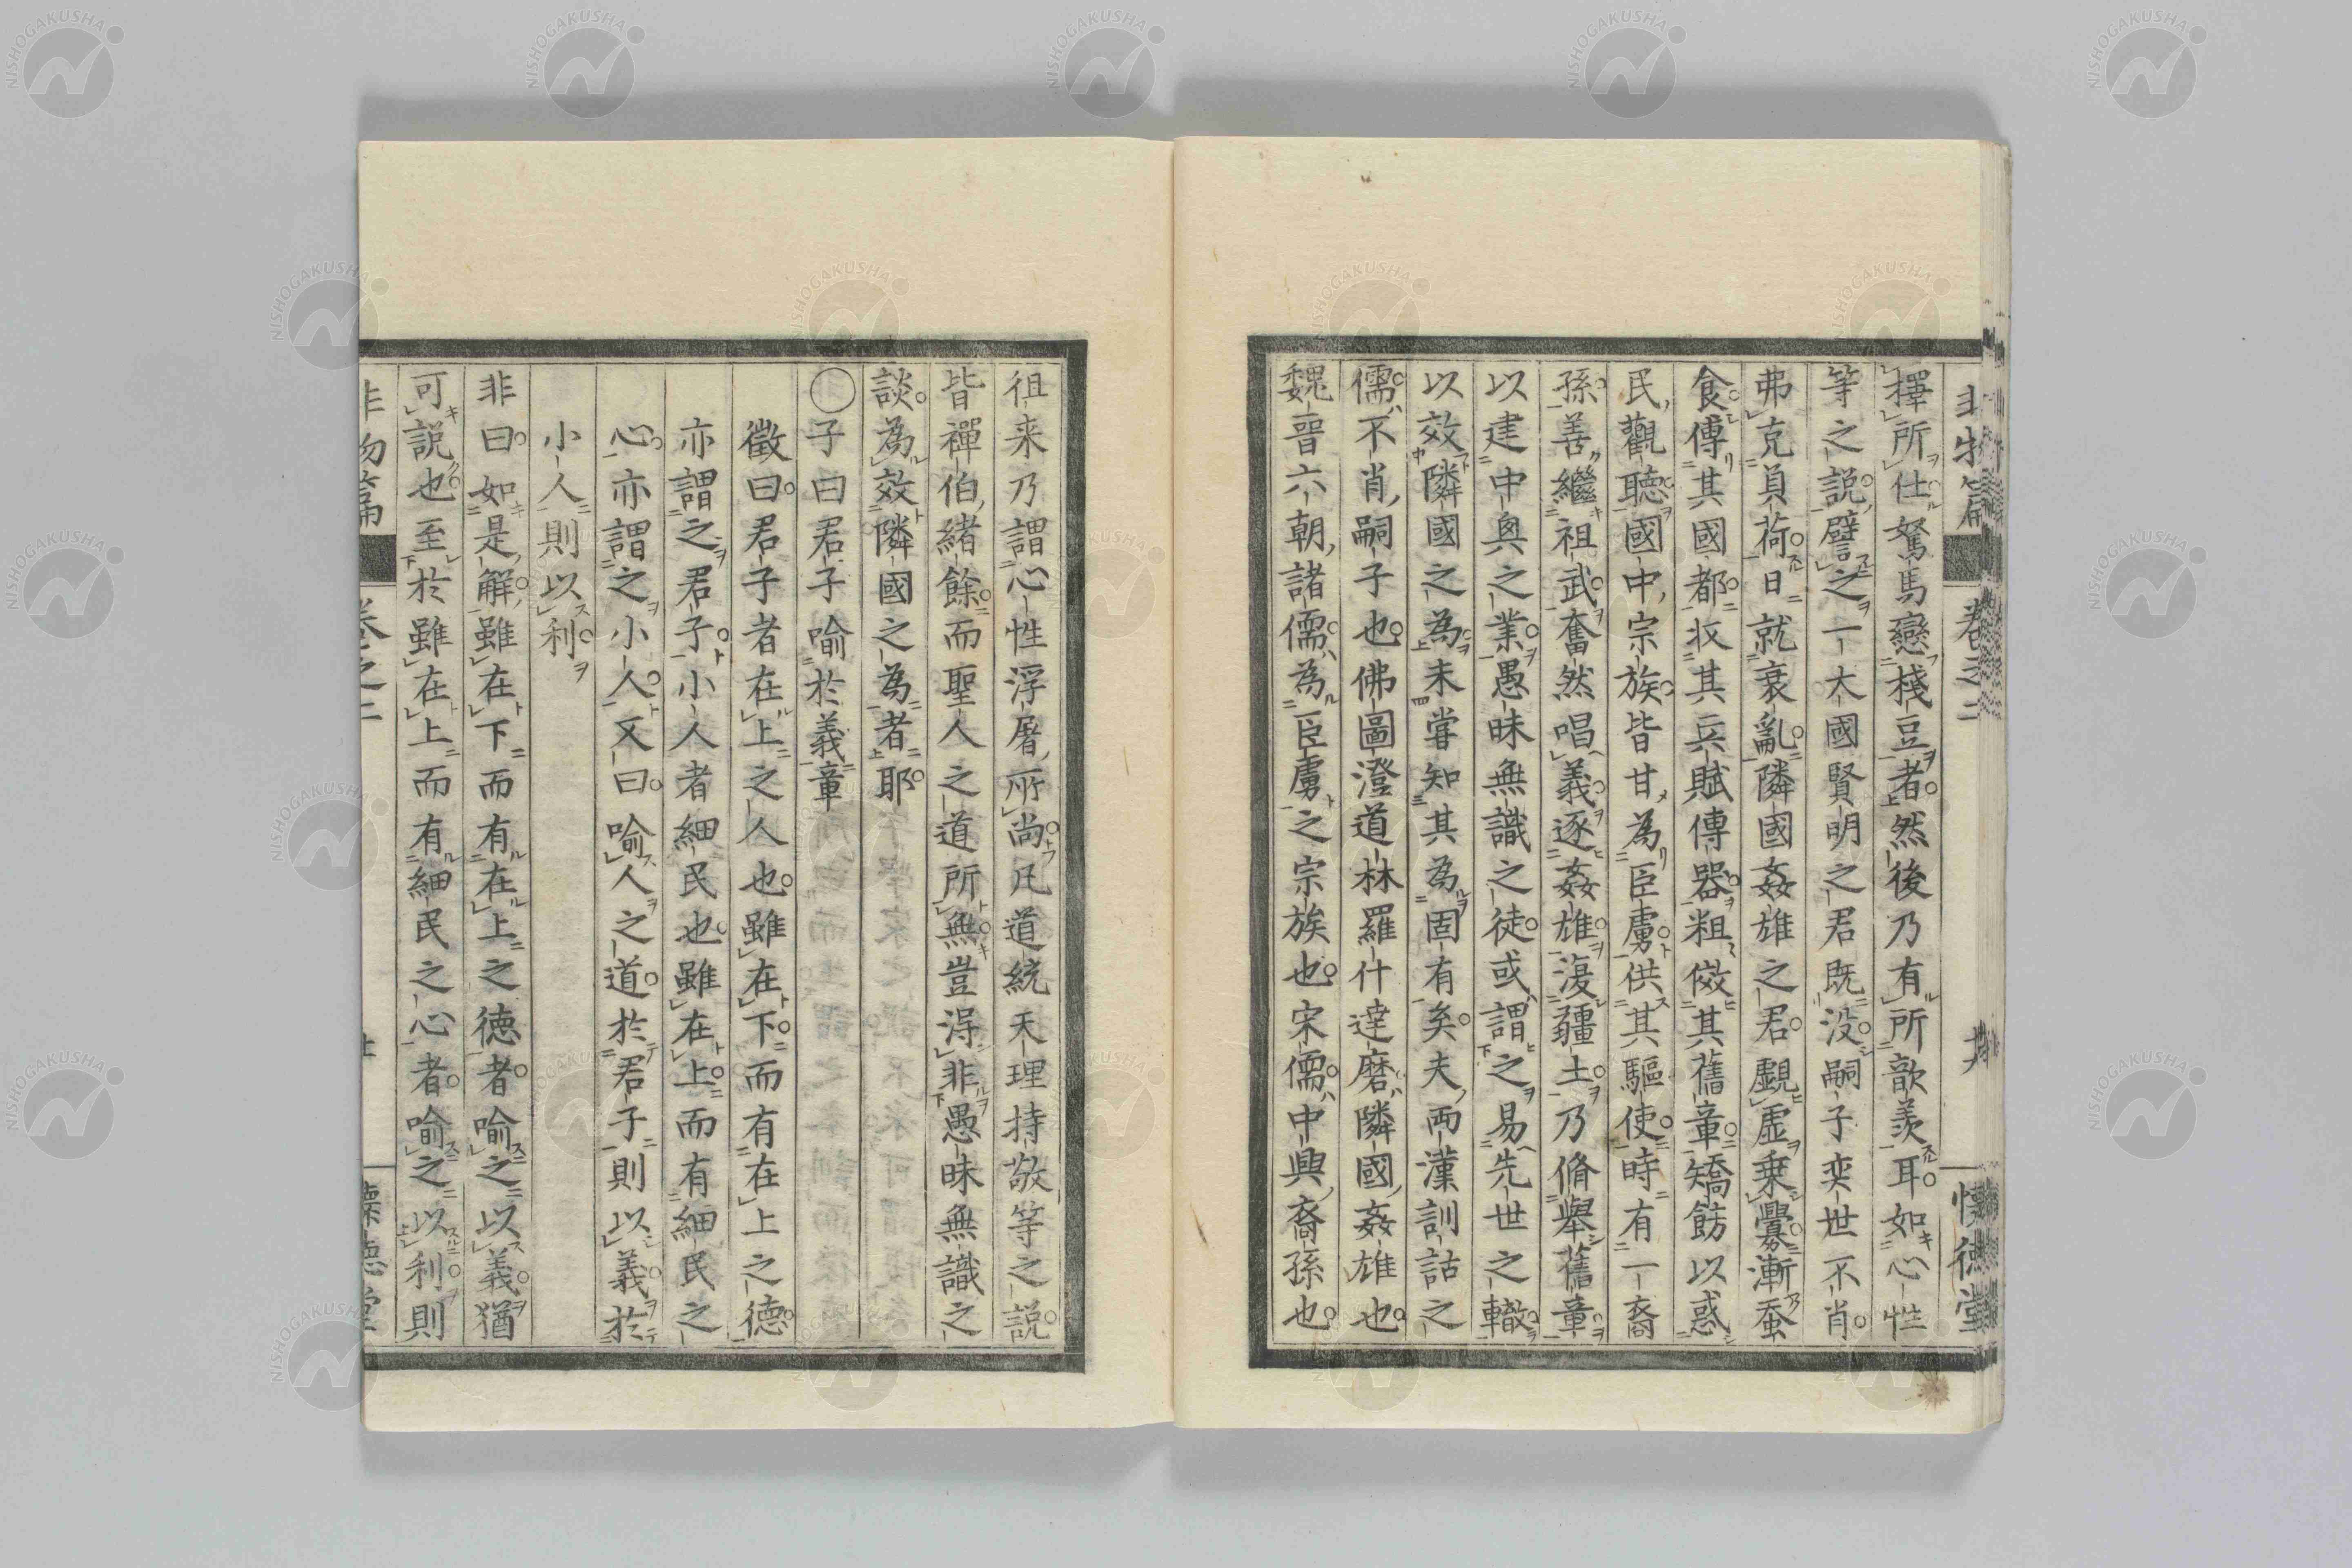 非物篇 卷之二 懷德堂
擇所仕駑馬戀棧豆者然後乃有所歆羨耳如心性
等之説譬之一大國賢明之君既没嗣子奕世不肖
弗克負荷日就衰亂隣國姦雄之君覷虚乗釁漸蚕
食傳其國都收其兵賦傳器粗倣其舊章矯飭以惑
民觀聽國中宗族皆甘為臣虜供其驅使時有一裔
孫善繼祖武奮然唱義逐姦雄復疆土乃脩舉舊章
以建中興之業愚昧無識之徒或謂之易先世之轍
以效隣國之為未嘗知其為固有矣夫両漢訓詁之
儒不肖嗣子也佛圖澄道林羅什達磨隣國姦雄也
魏晋六朝諸儒為臣虜之宗族也宋儒中興裔孫也
徂来乃謂心性浮屠所尚凡道統天理持敬等之説
皆禪伯緒餘而聖人之道所無豈得非愚昧無識之
談為效隣國之為者耶
○子曰君子喻於義章
徴曰君子者在上之人也雖在下而有在上之德
亦謂之君子小人者細民也雖在上而有細民之
心亦謂之小人又曰喻人之道於君子則以義於
小人則以利
非曰如是解雖在下而有在上之德者喻之以義猶
可説也至於雖在上而有細民之心者喻之以利則
非物篇 卷之二 懷德堂
NISHOGAKUSHA